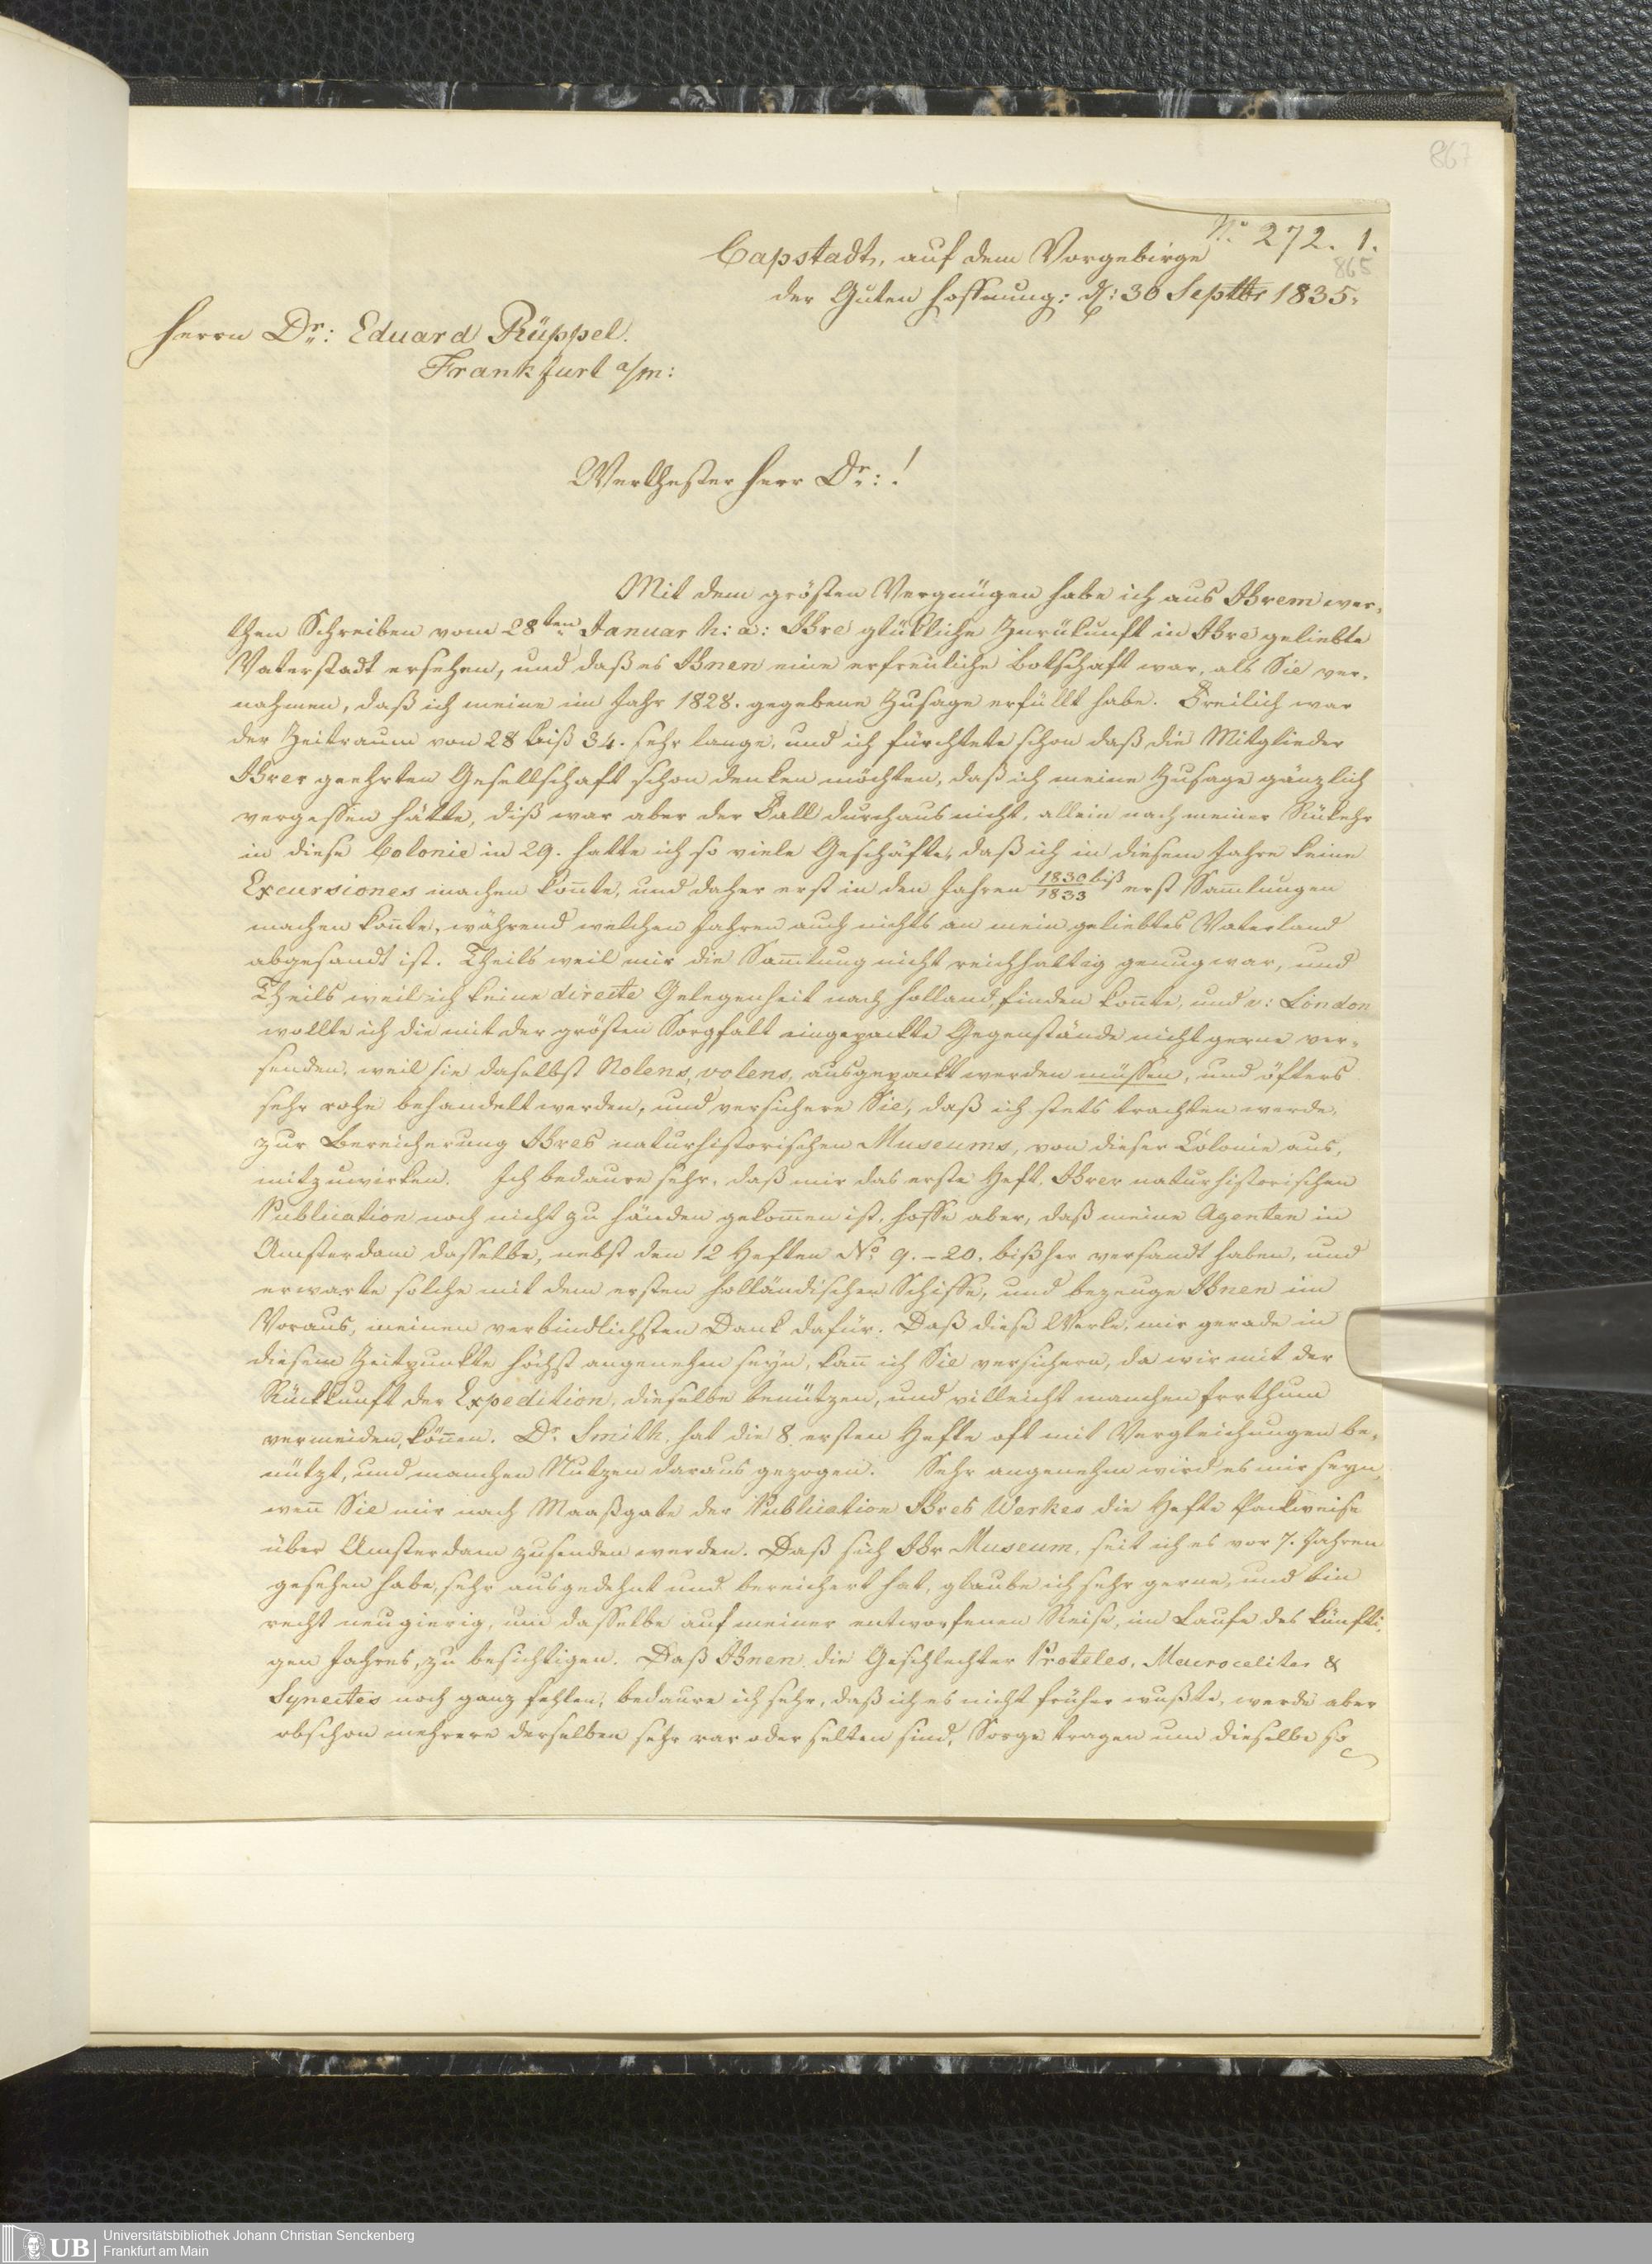 867
N.º 272. 1.
865
Capstadt, auf dem Vorgebirge
der Guten Hoffnung: d: 30 Septbr 1835.
Herrn Dr: Eduard Rüppel.
Frankfurt a/m:
Werthester Herr Dr: !
Mit dem grösten Vergnügen habe ich aus Ihrem wer-
then Schreiben vom 28ten Januar h: a: Ihre glükliche Zurükunft in Ihre geliebte
Vaterstadt ersehen, und daß es Ihnen eine erfreuliche Botschaft war, als Sie ver-
nahmen, daß ich meine im Jahr 1828. gegebene Zusage erfüllt habe. Freilich war
der Zeitraum von 28 biß 34. sehr lange, und ich fürchtete schon daß die Mitglieder
Ihrer geehrten Gesellschaft schon denken möchten, daß ich meine Zusage gänzlich
vergessen hätte, diß war aber der Fall durchaus nicht, allein nach meiner Rükehr
in diese Colonie in 29. hatte ich so viele Geschäfte, daß ich in diesem Jahre keine
Excursiones machen kon̄te, und daher erst in den Jahren 1830 biß 1833 erst Sam̄lungen
machen kon̄te, während welchen Jahren auch nichts an mein geliebtes Vaterland
abgesandt ist. Theils weil mir die Sam̄lung nicht reichhaltig genug war, und
Theils weil ich keine directe Gelegenheit nach Holland finden kon̄te, und v: London
wollte ich die mit der grösten Sorgfalt eingepackte Gegenstände nicht gerne ver-
senden, weil sie daselbst Nolens, volens, ausgepackt werden müssen, und öfters
sehr rohe behandelt werden, und versichere Sie, daß ich stets trachten werde,
zur Bereicherung Ihres naturhistorischen Museums, von dieser Colonie aus,
mitzuwirken. Ich bedaure sehr, daß mir das erste Heft, Ihrer naturhistorischen
Publication noch nicht zu händen gekom̄en ist, hoffe aber, daß meine Agenten in
Amsterdam dasselbe, nebst den 12 Heften No 9. – 20. bißher versandt haben, und
erwarte solche mit dem ersten holländischen Schiffe, und bezeuge Ihnen im
Voraus, meinen verbindlichsten Dank dafür. Daß diese Werke, mir gerade in
diesem Zeitpunkte höchst angenehm seyn, kan̄ ich Sie versichern, da wir mit der
Rückkunft der Expedition, dieselbe benützen, und villeicht manchen Irrthum
vermeiden, kön̄en. Dr Smith, hat die 8. ersten Hefte oft mit Vergleichungen be-
nützt, und manchen Nutzen daraus gezogen. Sehr angenehm wird es mir seyn,
wen̄ Sie mir nach Maaßgabe der Publication Ihres Werkes die Hefte Packweise
über Amsterdam zusenden werden. Daß sich Ihr Museum, seit ich es vor 7. Jahren
gesehen habe, sehr ausgedehnt und bereichert hat, glaube ich sehr gerne, und bin
recht neugierig, um dasselbe auf meiner entworfenen Reise, im Laufe des künfti-
gen Jahres, zu besichtigen. Daß Ihnen die Geschlechter Proteles, Macrocelites &
Synectes noch ganz fehlen, bedaure ich sehr, daß ich es nicht früher wußte, werde aber
obschon mehrere derselben sehr rar oder selten sind, Sorge tragen um dieselbe so
UB Universitätsbibliothek Johann Christian Senckenberg
Frankfurt am Main